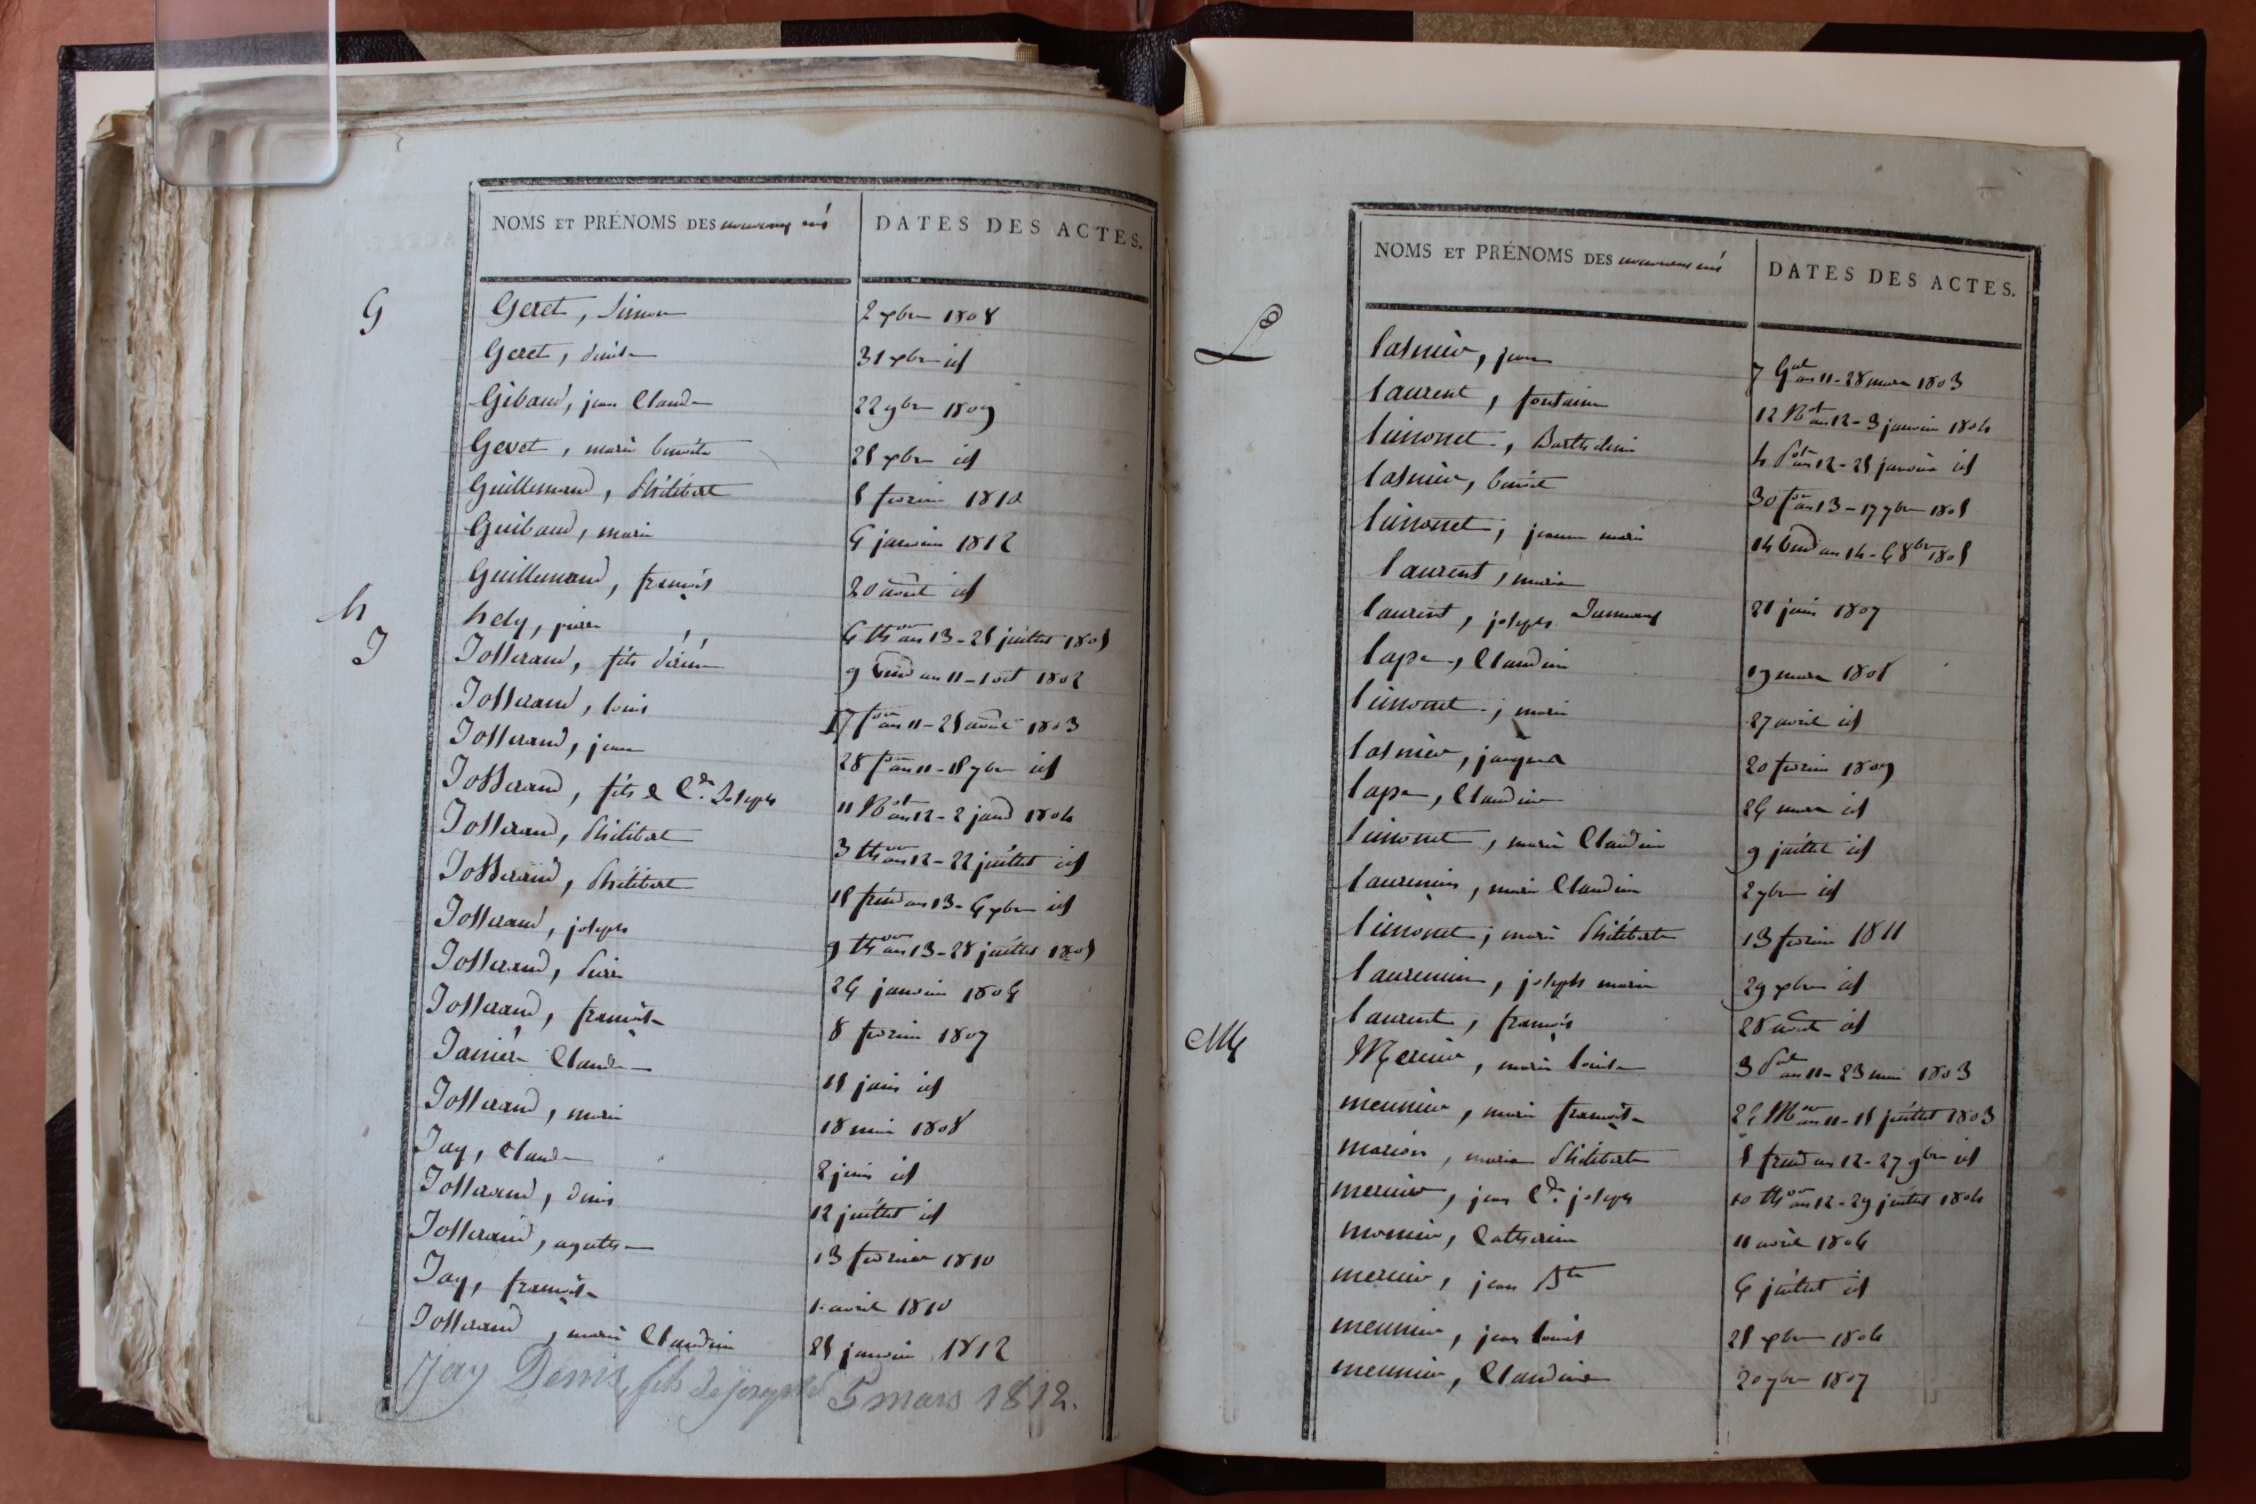 NOMS ET PRÉNOMS DES nouveaux nés
DATES DES ACTES.
G
Geret, Simon 2 xbre 1808
Geret, denise 31 xbre id
Gibaud, jean Claude 22 9bre 1809
Gevet, marie benoite 25 xbre id
Guillemaud, Philibert 5 fevrier 1810
Guibaud, marie 6 janvier 1812
Guillemaud, francois 20 août id
h
hely, pierre 6 thor an 13 - 25 juillet 1805
J
Josserand, fils d'irénée 9 vend an 11 - 1 oct 1802
Josserand, louis 7 for an 11 - 25 août 1803
Josserand, jean 28 for an 11 - 15 7bre id
Josserand, fils de Cde Joseph 11 Not an 12 - 2 janv 1804
Josserand, Philibert 3 thor an 12 - 22 juillet id
Josserand, Philibert 15 frim an 13 - 6 xbre id
Josserand, joseph 9 thor an 13 - 28 juillet 1805
Josserand, Pierre 26 janvier 1806
Josserand, francoise 8 fevrier 1807
Janier Claude 15 juin id
Josserand, marie 18 mai 1808
Jay, Claude 2 juin id
Josserand, denis 12 juillet id
Josserand, agathe 13 fevrier 1810
Jay, francoise 1 avril 1810
Josserand, marie Claudine 25 janvier 1812
Jay Denis, fils de joseph 5 mars 1812.
NOMS ET PRÉNOMS DES nouveaux nés
DATES DES ACTES.
L
lasnier, jean 7 Gal an 11 - 28 mars 1803
laurent, fontaine 12 Not an 12 - 3 janvier 1804
limonet, Barthelemi 4 Pot an 12 - 25 janvier id
lasnier, benoit 30 for an 13 - 17 7bre 1805
limonet, jeanne marie 14 vend an 14 - 6 8bre 1805
laurent, marie
laurent, joseph 21 juin 1807
lape, Claudine 19 mars 1808
limonet, marie 27 avril id
lasnier, jacques 20 fevrier 1809
lape, Claudine 26 mars id
limonet, marie Claudine 9 juillet id
laurencin, marie Claudine 2 7bre id
limonet, marie Philiberte 13 fevrier 1811
laurencin, joseph marie 29 xbre id
laurent, francois 28 août id
M
Mercier, marie louise 3 Pal an 11 - 23 mai 1803
meunier, marie francoise 26 Mor an 11 - 15 juillet 1803
marion, marie Philiberte 5 frim an 12 - 27 9bre id
mercier, jean Cde joseph 10 thor an 12 - 29 juillet 1804
monnier, Catherine 11 avril 1806
mercier, jean Bte 6 juillet id
meunier, jean louis 25 xbre 1806
meunier, Claudine 20 7bre 1807